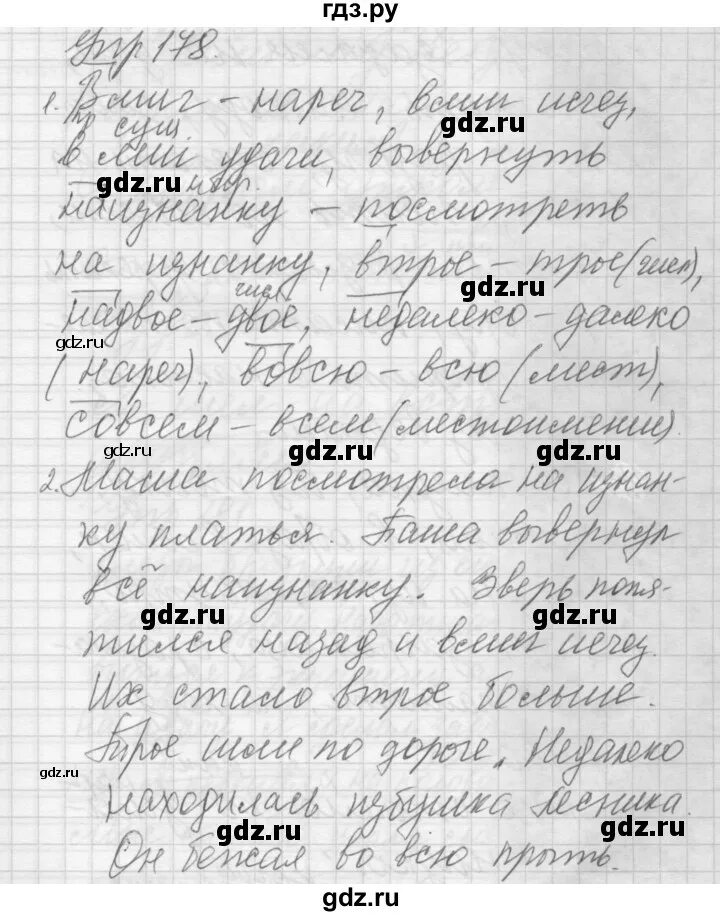 гдз.ру
Упр 178.
1. Вмиг – нареч, вмиг исчез,
пр сущ.
gdz.ru
в миг удачи, вывернуть
gdz.ru
нар.
наизнанку – посмотреть
на изнанку, втрое – трое (числ),
gdz.ru
числ
надвое – двое, недалеко – далеко
gdz.ru
(нареч), вовсю – всю (мест),
совсем – всем (местоимение).
gdz.ru
gdz.ru
2. Маша посмотрела на изнан-
ку платья. Паша вывернул
всё наизнанку. Зверь попя-
gdz.ru
gdz.ru
тился назад и вмиг исчез.
Их стало втрое больше.
Трое шли по дороге. Недалеко
gdz.ru
находилась избушка лесника.
gdz.ru
gdz.ru
Он бежал во всю прыть.
gdz.ru